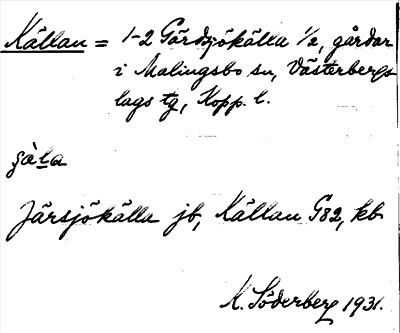 Källan = 1-2 Gärdsjökälla 1/2, gårdar
i Malingsbo sn, Västerbergs
lags tg, Kopp. l.
Järsjökälla jb, Källan G82, kb
K. Söderberg 1931.